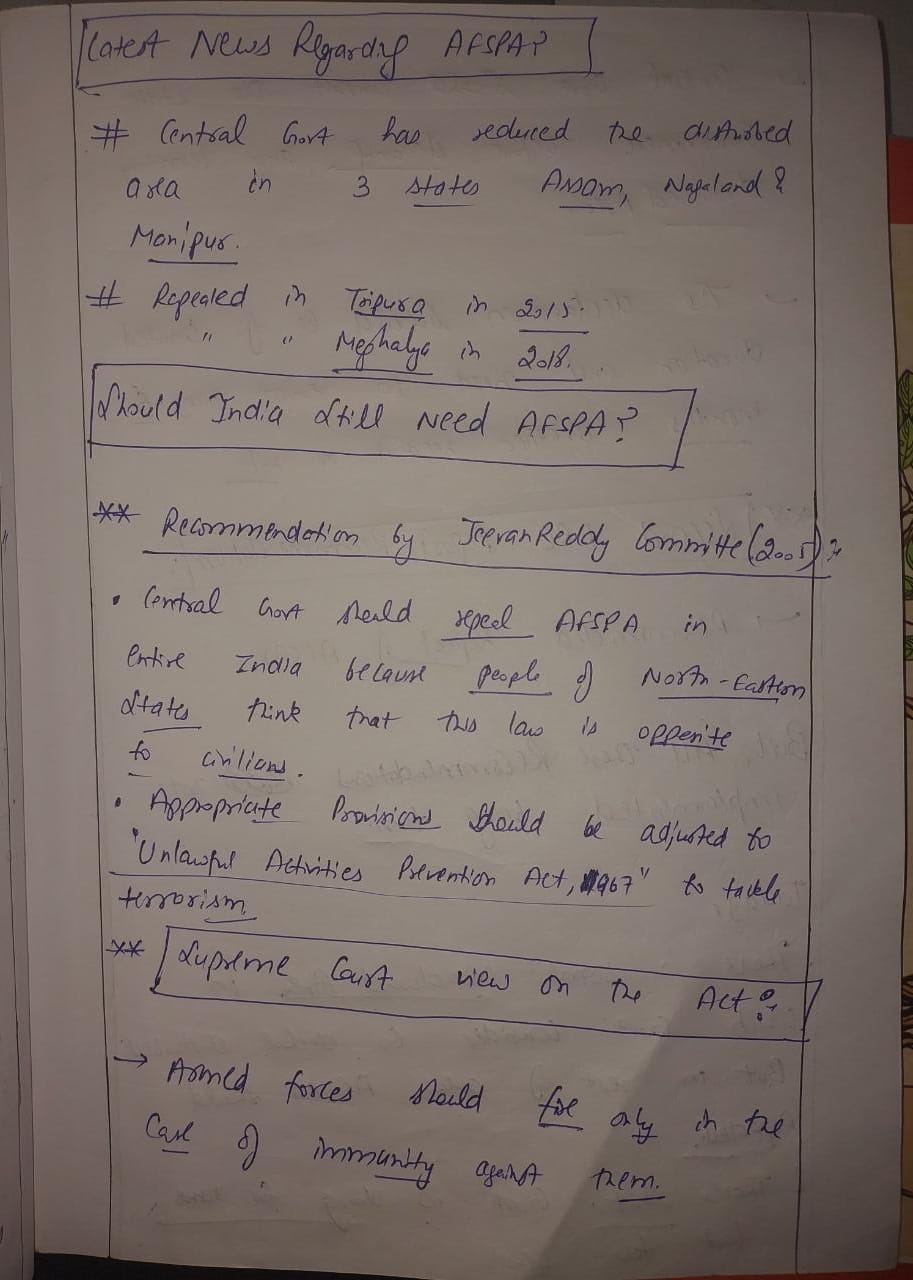 Latest News Regarding AFSPA?
# Central Govt has reduced the disturbed
area in 3 states Assam, Nagaland &
Manipur.
# Repealed in Tripura in 2015.
" " Meghalya in 2018.
Should India Still Need AFSPA?
** Recommendation by Jeevan Reddy Committe (2005):
• Central Govt should repeal AFSPA in
Entire India because people of North-Eastern
States think that this law is opposite
to civilians.
• Appropriate Provisions should be adjusted to
"Unlawful Activities Prevention Act, 1967" to tackle
terrorism
** Supreme Court view on the Act:
→ Armed forces should fire only in the
Case of immunity against them.